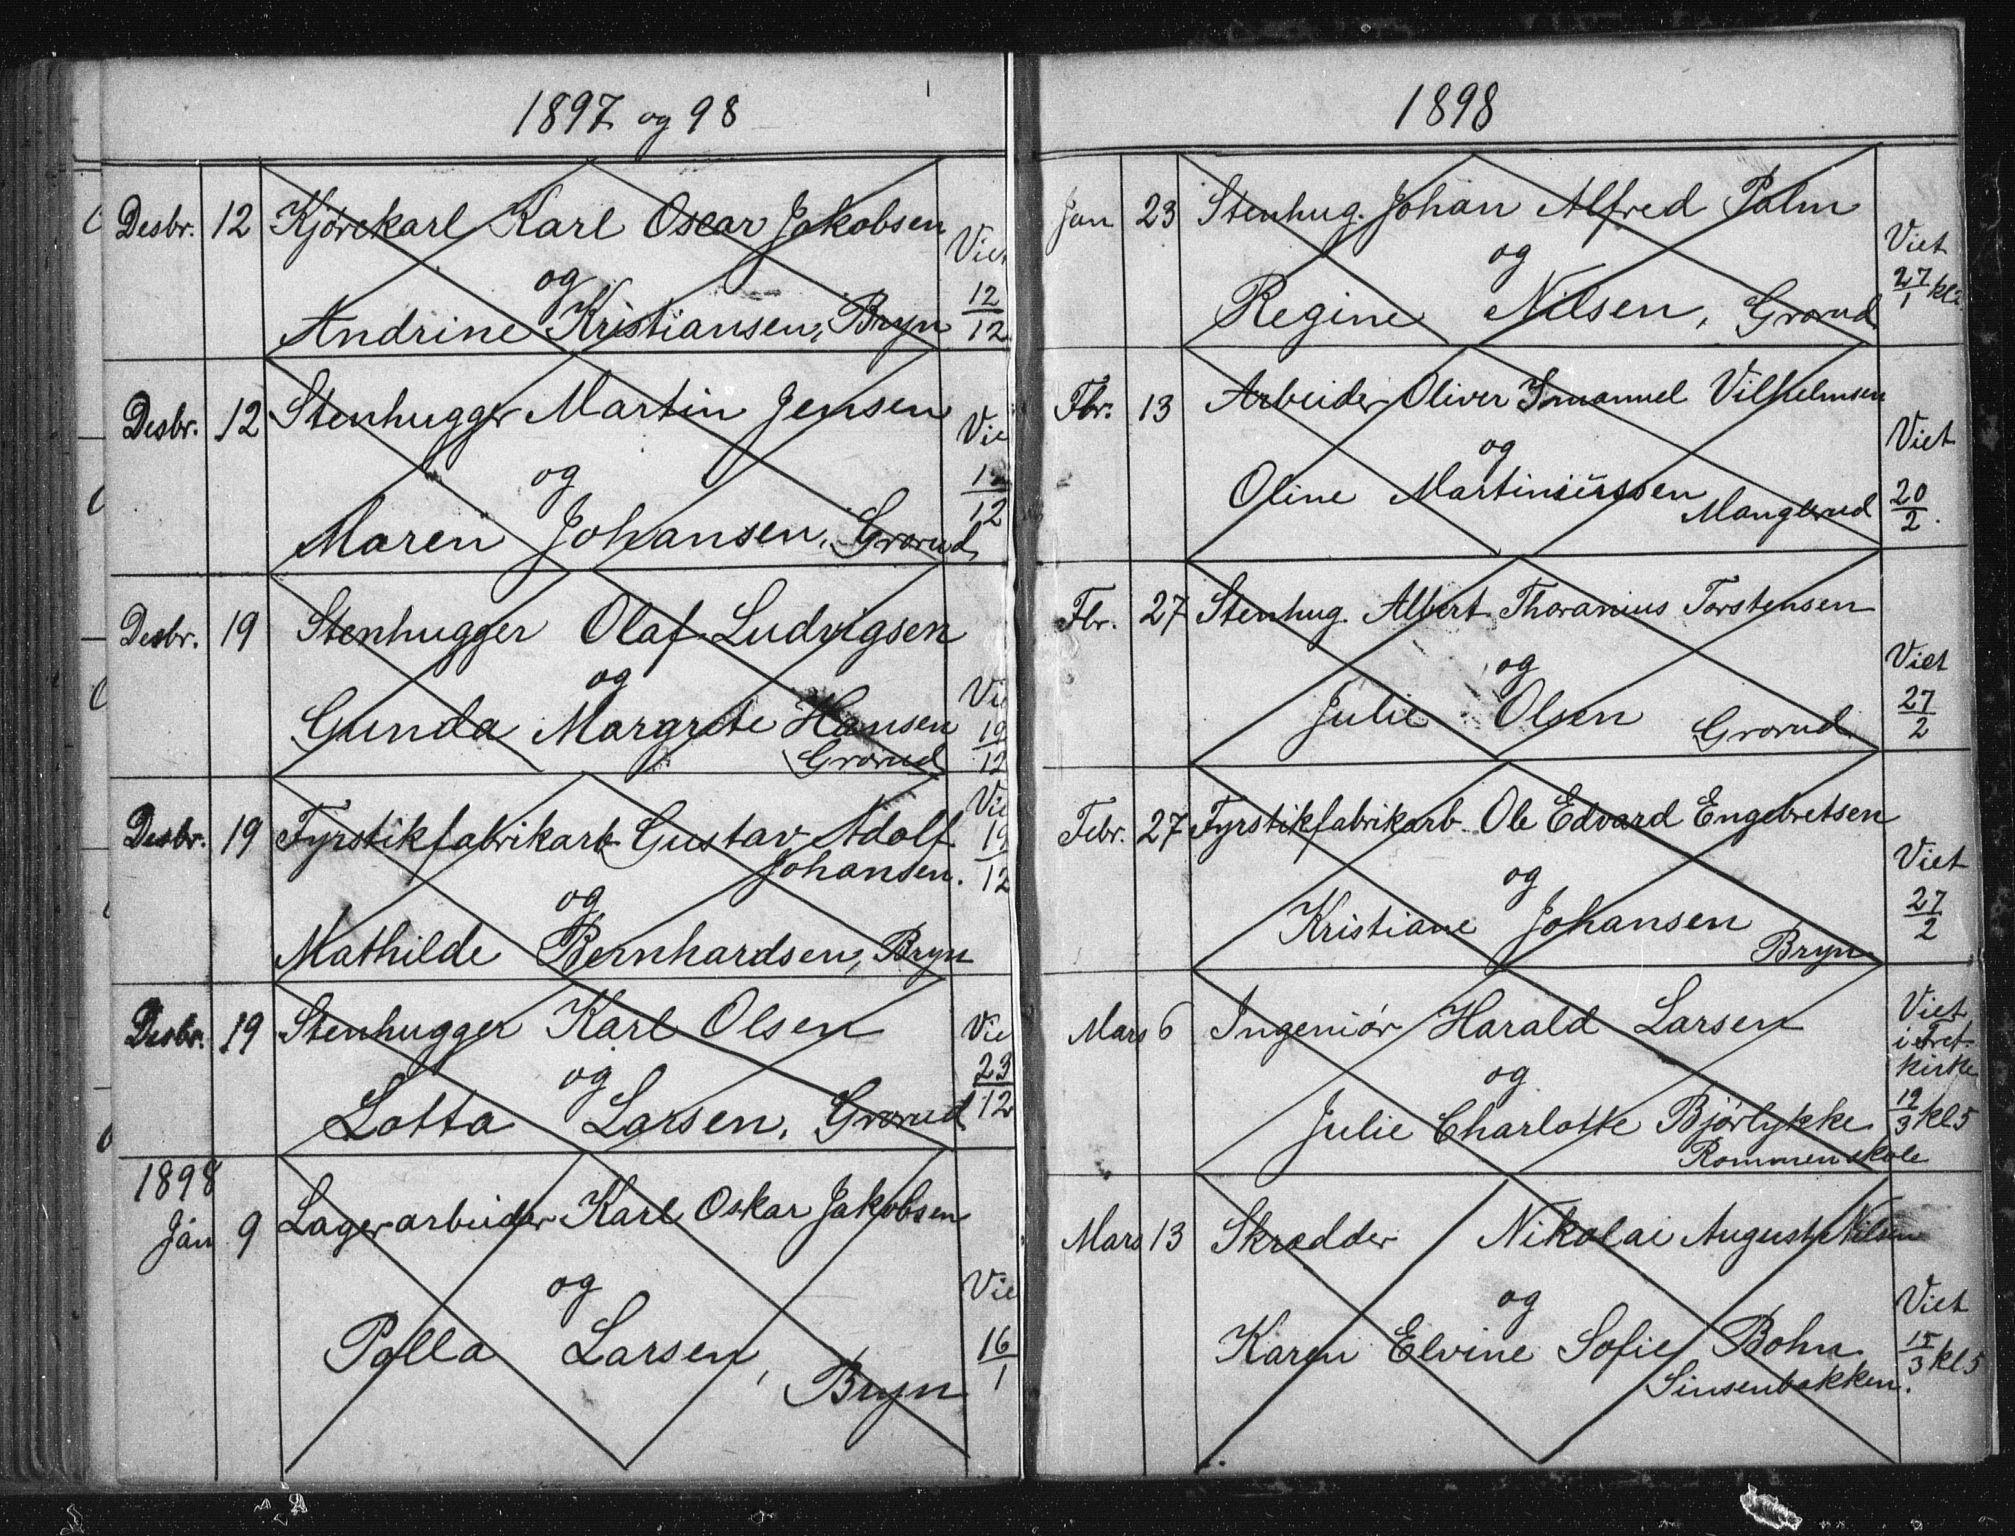 1897 og 98
Desbr. 12 Kjørekarl Karl Oscar Jakobsen
og
Andrine Kristiansen, Bryn
Vie
12/12
Desbr. 12 Stenhugger Martin Jensen
og
Maren Johansen, Grorud
Vie
12/12
Desbr. 19 Stenhugger Olaf Ludvigsen
og
Gunda Margrete Hansen
Grorud
Vi
19/12
Desbr. 19 Fyrstikfabrikarb Gustav Adolf
Johansen.
og
Mathilde Bernhardsen, Bryn
Vie
19/12
Desbr. 19 Stenhugger Karl Olsen
og
Lotta Larsen, Grorud
Vie
23/12
1898
Jan 9 Lagerarbeider Karl Oskar Jakobsen
og
Palla Larsen,
Bryn
Vie
16/1
1898
Jan 23 Stenhug. Johan Alfred Palm
og
Regine Nilsen, Grorud
Viet
27/1 kl
Fbr. 13 Arbeider Oliver Imanuel Vilhelmsen
og
Oline Martiniussen
Manglerud
Viet
20/2.
Fbr. 27 Stenhug. Albert Thoranius Torstensen
og
Julie Olsen
Grorud
Viet
27/2
Febr. 27 Fyrstikfabrikarb. Ole Edvard Engebretsen
og
Kristiane Johansen
Bryn
Viet
27/2
Mars 6 Ingeniør Harald Larsen
og
Julie Charlotte Bjørlykke
Rommen skole
Viet
i Tref.
kirke
12/3 kl 5
Mars 13 Skrædder Nikolai August Nilsen
og
Karen Elvine Sofie Bohn
Sinsenbakken.
Viet
15/3 kl 5